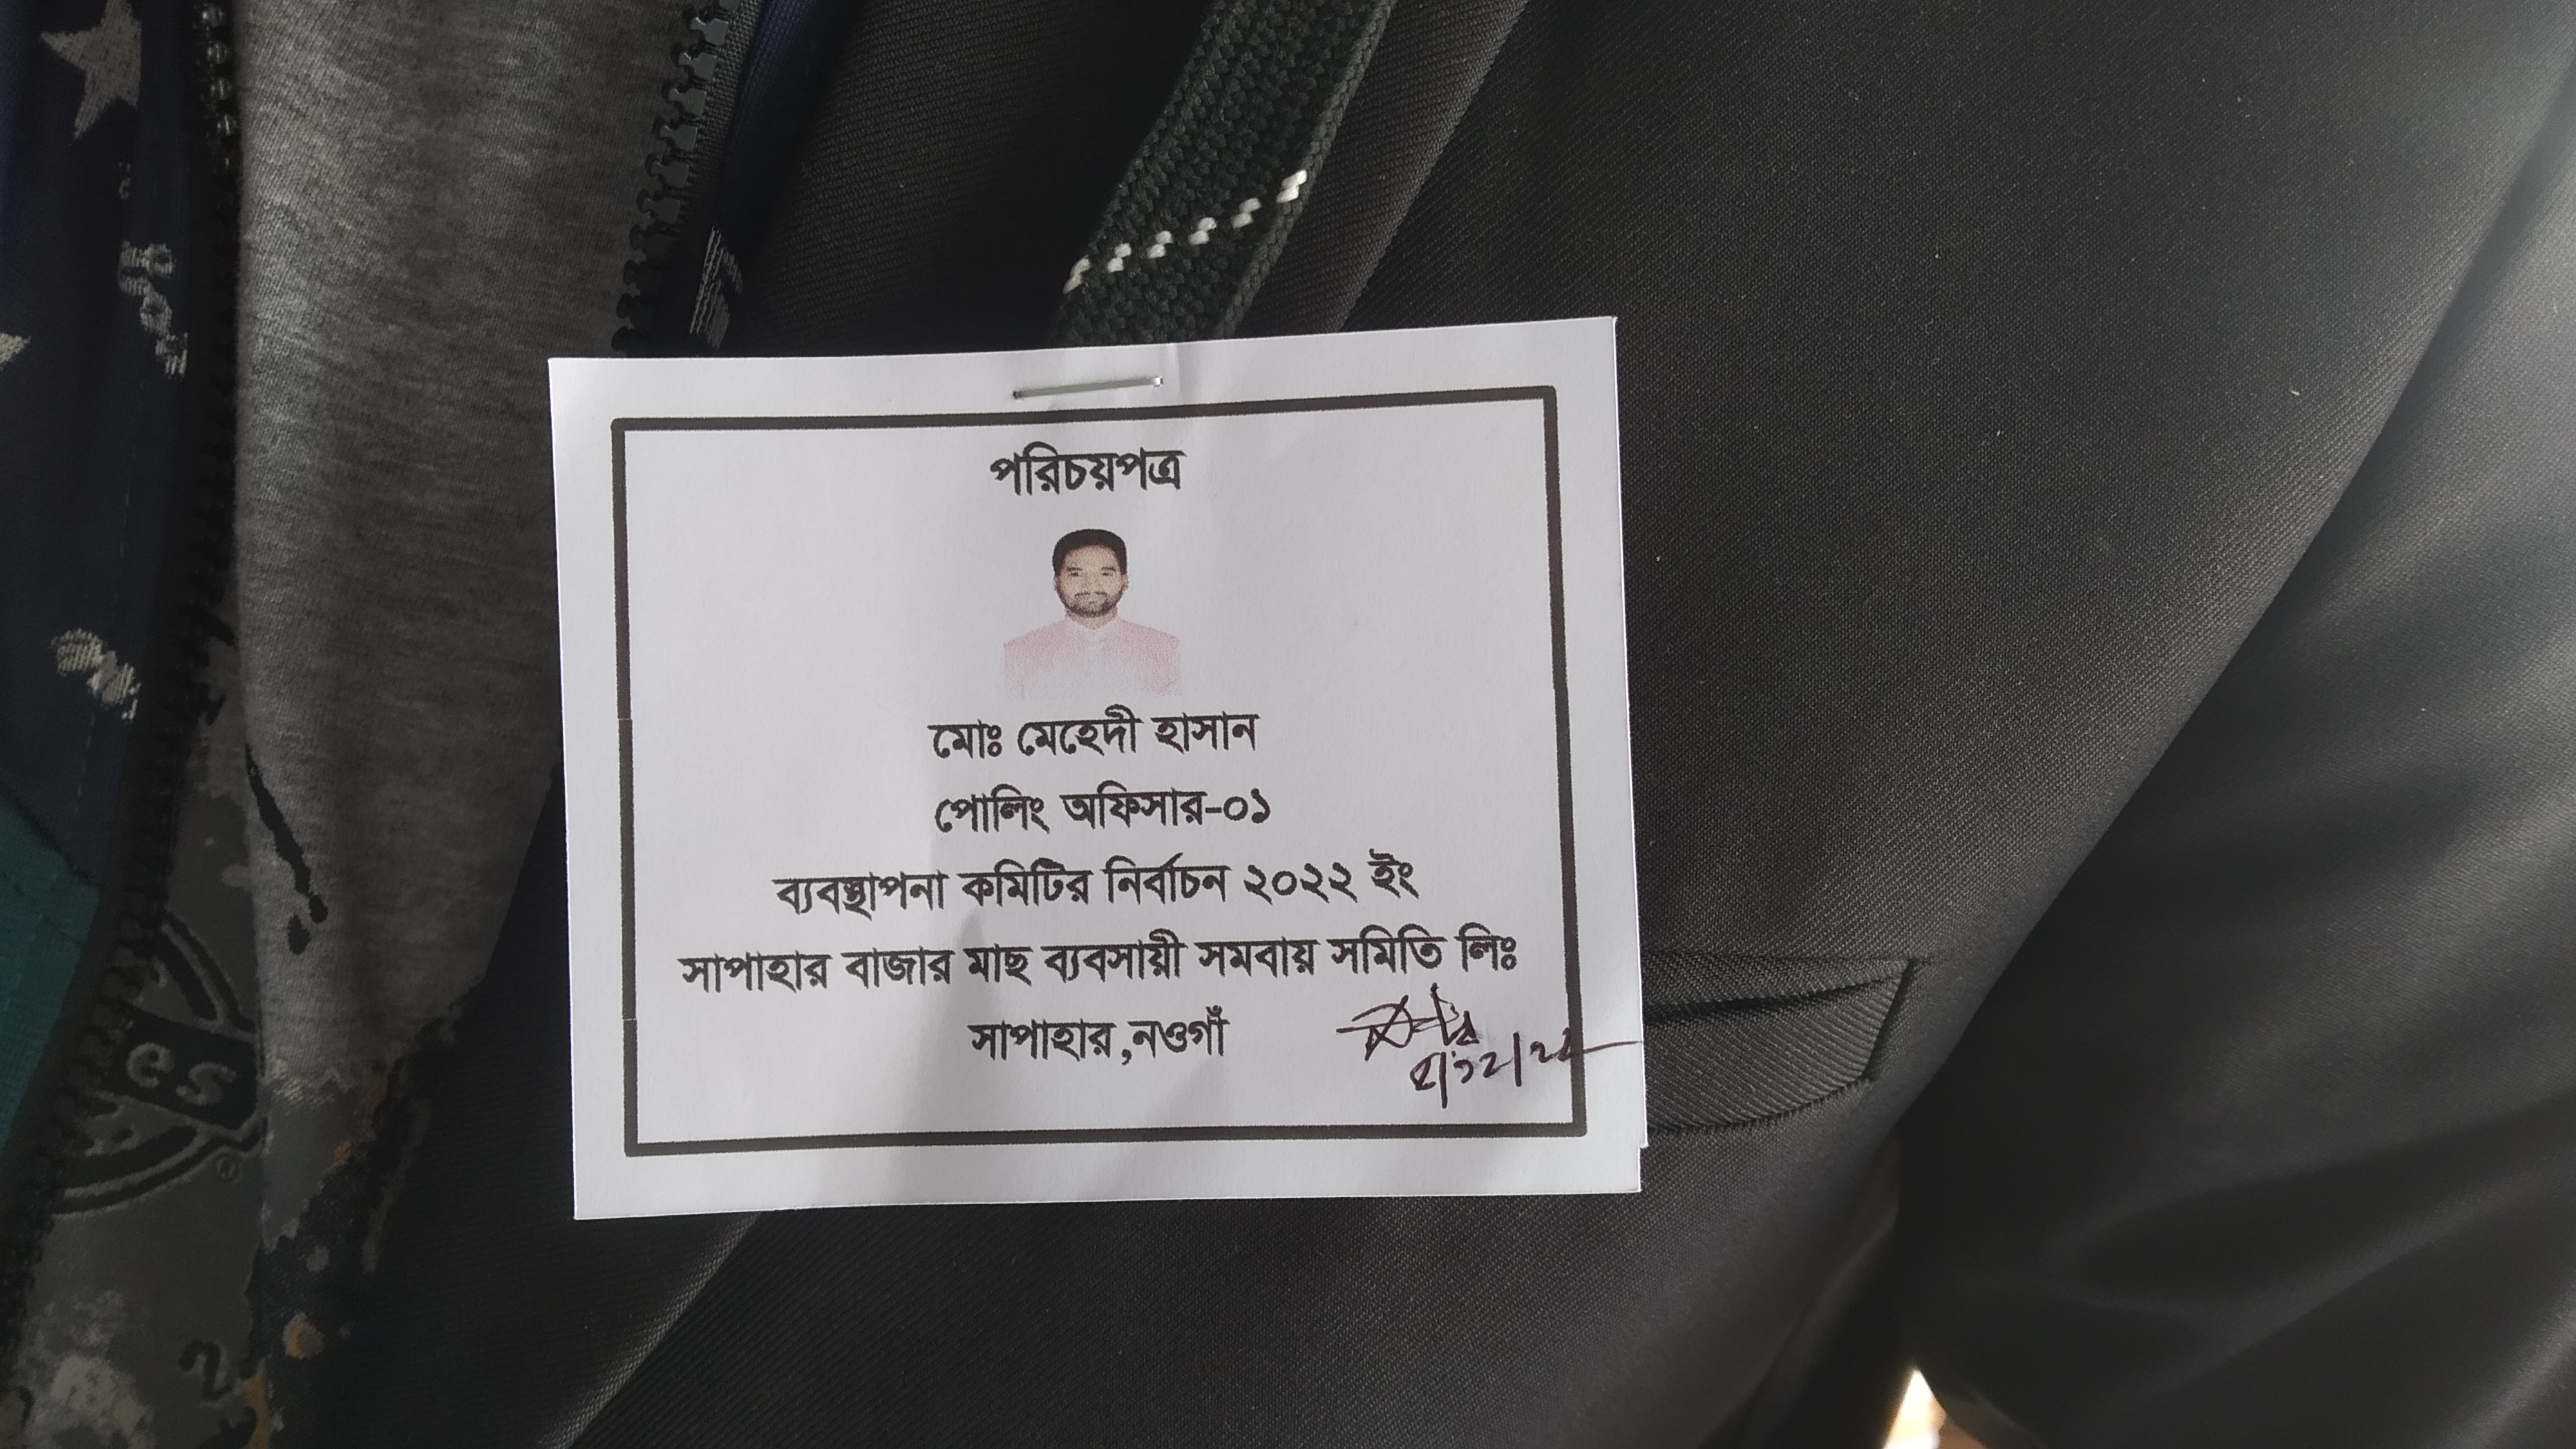 পরিচয়পত্র
মোঃ মেহেদী হাসান
পোলিং অফিসার-০১
ব্যবস্থাপনা কমিটির নির্বাচন ২০২২ ইং
সাপাহার বাজার মাছ ব্যবসায়ী সমবায় সমিতি লিঃ
সাপাহার,নওগাঁ
es
®
2